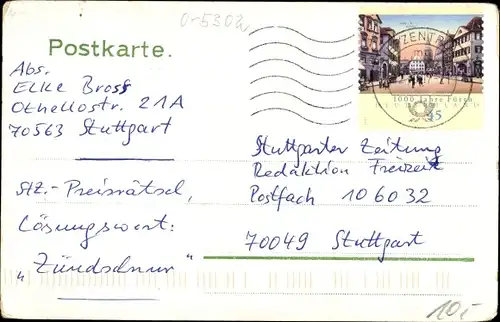 0-5302
Postkarte.
Abs.
Elke Bross
Othellostr. 21A
70563 Stuttgart
BRIEFZENTRUM
1000 Jahre Fürth
DEUTSCHLAND
45
Stuttgarter Zeitung
Redaktion Freizeit
Postfach 106032
70049 Stuttgart
StZ.-Preisrätsel,
Lösungswort:
„Zündschnur"
10,-